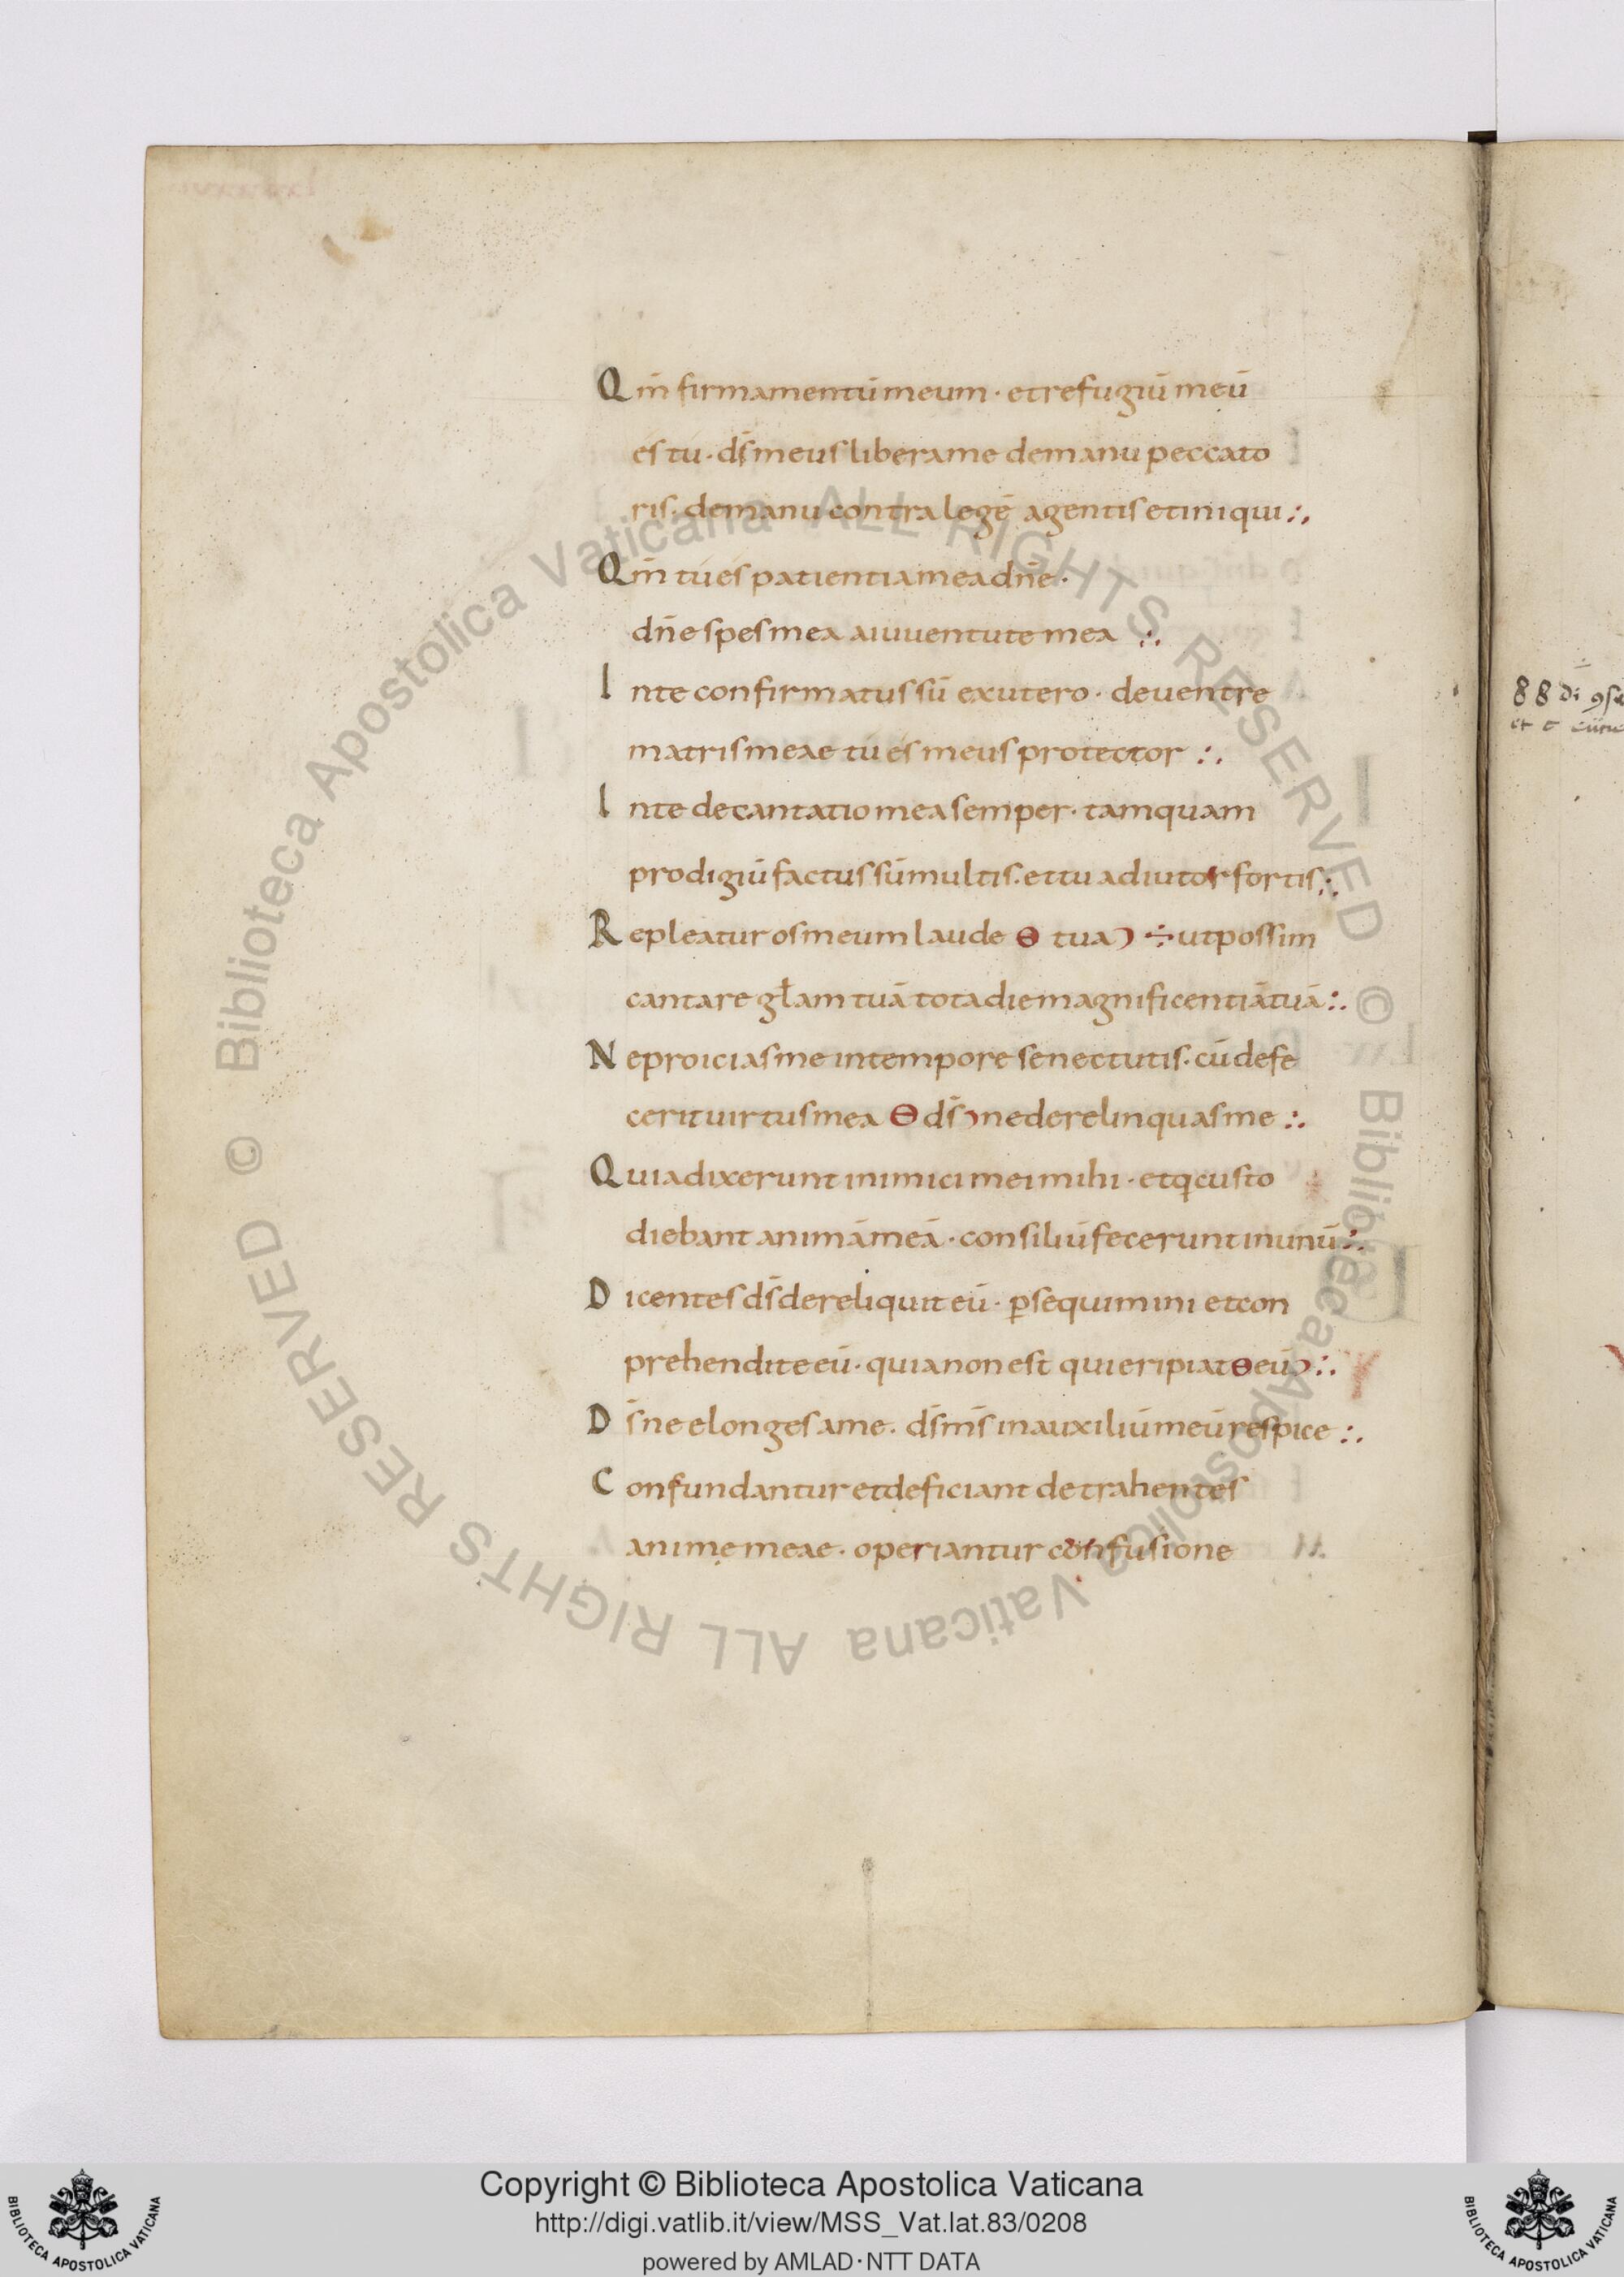 Qm̄ firmamentū meum · et refugiū meū
es tu · ds̄ meus libera me de manu peccato
ris · de manu contra legē agentis et iniqui :.
Qm̄ tu es patientia mea dn̄e ·
dn̄e spes mea a iuuentute mea :.
In te confirmatus sū ex utero · de uentre
matris meae tu es meus protector :.
In te decantatio mea semper · tamquam
prodigiū factus sū multis · et tu adiutor fortis :.
Repleatur os meum laude ϴ tua ) ÷ ut possim
cantare gl̄am tuā tota die magnificentiā tuā :.
Ne proicias me in tempore senectutis · cū defe
cerit uirtus mea ϴ ds̄ ) ne derelinquas me :.
Quia dixerunt inimici mei mihi · et q custo
diebant animā meā · consiliū fecerunt in unū :.
Dicentes ds̄ dereliquit eū · p̱sequimini et con
prehendite eū · quia non est qui eripiat ϴ eū ) :.
Ds̄ ne elonges a me · ds̄ ms̄ in auxiliū meū respice :.
Confundantur et deficiant detrahentes
anime meae · operiantur confusione
88 di
© Biblioteca Apostolica Vaticana ALL RIGHTS RESERVED
© Biblioteca Apostolica Vaticana ALL RIGHTS RESERVED
Copyright © Biblioteca Apostolica Vaticana
http://digi.vatlib.it/view/MSS_Vat.lat.83/0208
powered by AMLAD·NTT DATA
BIBLIOTECA APOSTOLICA VATICANA
BIBLIOTECA APOSTOLICA VATICANA